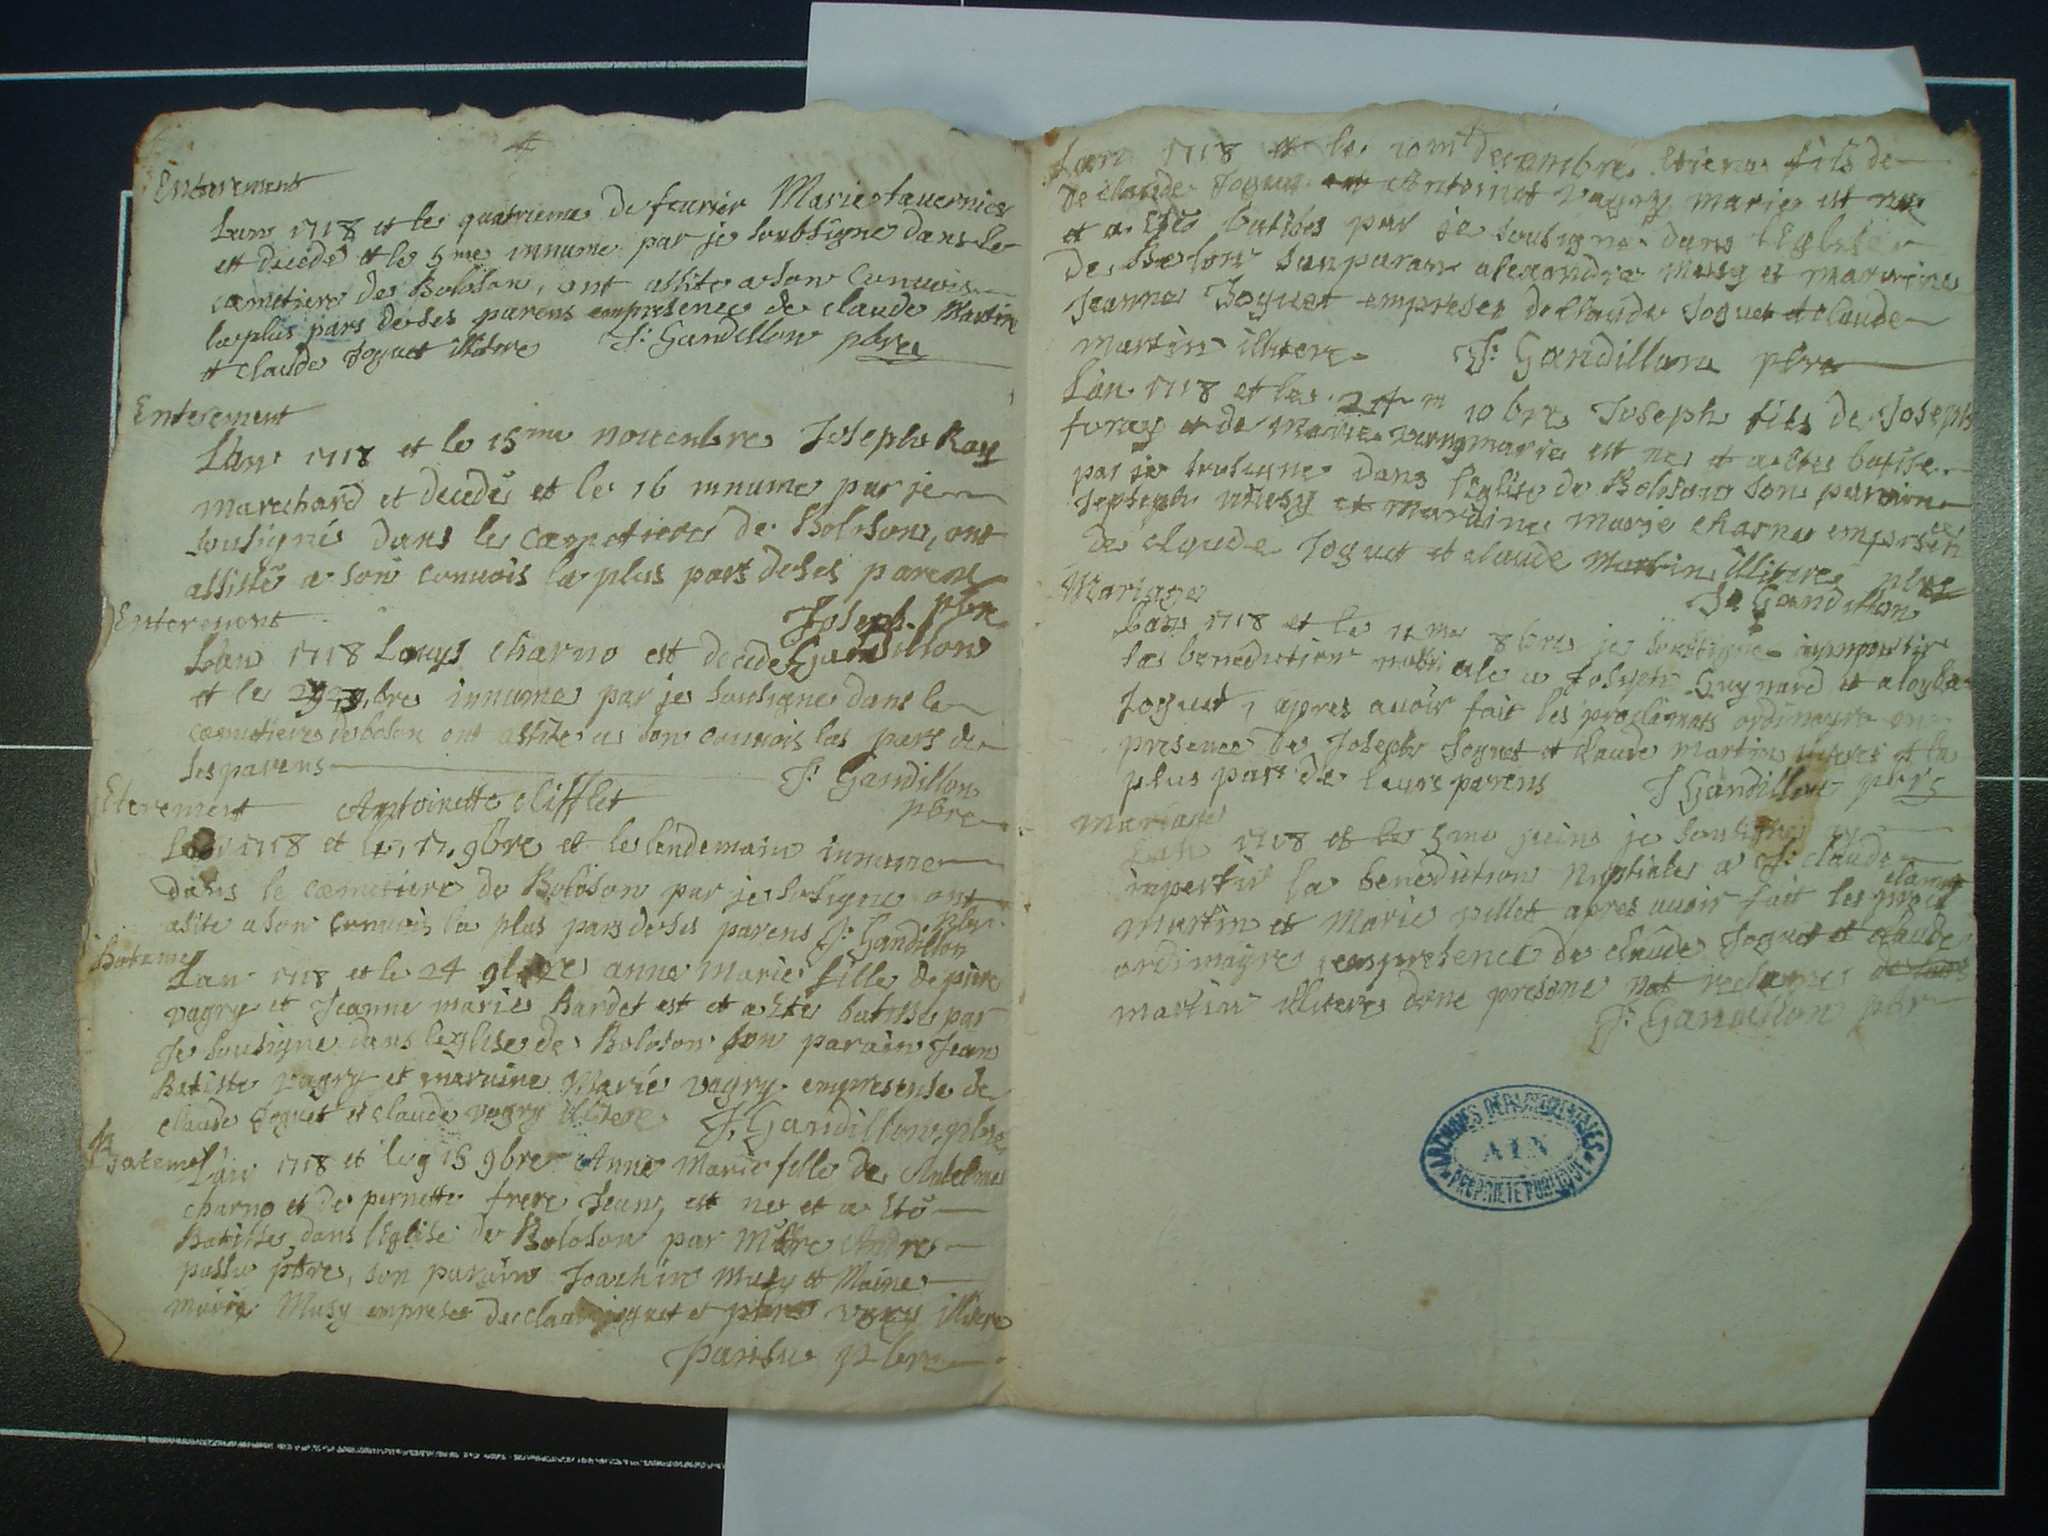 Enterement
Lan 1718 et les quatrieme de fevrier Marie tavernier
et decede et le 5me innume par je soubsigne dans le
cæmetiere de Boloson, ont assite a son convois
la plus pars de ses parens empresence de claude Martin
et claude Joguet illitere J: Gandillon pbre
Enterement
Lan 1718 et le 15me novembre Joseph Ray
marechard et decedes et le 16 innume par je
sousigné dans le cæmetiere de Boloson, ont
assisté a son convois la plus pars de ses parens
Joseph pbre
Enterement
Lan 1718 Louys Charno est decede Gandillon
et le 29 9bre innume par je sousigne dans le
cæmetiere de bolos ont assite a son convois las pars de
ses parens J: Gandillon
pbre
Eterement Antoinette Clifflet
Lan 1718 et le 17. 9bre et le lendemain innume
dans le cæmetiere de Boloson par je sousigne ont
asite a son convois la plus pars de ses parens J: Gandillon
pbre
Bateme
Lan 1718 et le 24 9bre anne Marie fille de piere
vagry et Jeanne marie Bardet est et a ete batisse par
Je sousigne dans leglise de Boloson son parain Jean
Batiste vagry et maraine Marie vagry. empresense de
claude Joguet et claude vagry illitere J. Gandillon pbre
Bateme
Lan 1718 et le 15 9bre Anne Marie fille de Antelme
charno et de pernette frere Jean, est ne et a eté
Batisse dans l'Eglise de Boloson par Andre
pbre, son parain Joachin Musy et
marie Musy empresee de claude joguet et vagry illitere
pbre
Lan 1718 et le 10m decembre. Etiene fils de
de claude Joguet Antoinet vagry marie et ne
et a été batisés par je sousigne dans l'Eglise
de Bolon sunparan alexandre musy et maraine
Jeanne Joguet empresee de claude Joguet et claude
martin illitere J: Gandillon pbre
Lan 1718 et les 24m 10bre Joseph fils de Joseph
furay et de marie marie est ne et a etes batise
par je sousigne dans l'Eglise de Boloson son parain
Jopseph musy et maraine marie charno empersen
de claude Joguet et claude Martin illitere pbre
J. Gandillon
Mariage
Lan 1718 et le 11me 8bre je soussigne
las benediction a Joseph Guynard et
Joguet, apres avoir fait les proclamats ordinayre en
presence de Joseph Joguet et claude martin et la
plus pars de leurs parens J Gandillon pbre
mariage
Lan 1718 et le 5me juins je sousigne ay
impertir la benediction Nuptiales a J: claude
Martin et Marie pillet apres avoir fait les procl
ordinayre, empresence de claude Joguet et claude
martin illitere done presone
J: Gandillon pbr
ARCHIVES DEPARTEMENTALES
AIN
PROPRIETE PUBLIQUE